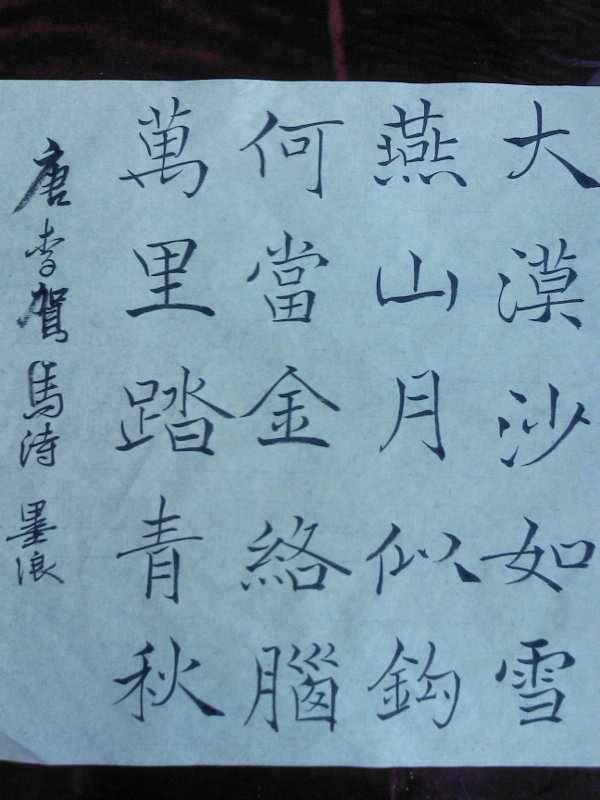 大漠沙如雪
燕山月似鈎
何當金絡腦
萬里踏青秋
唐李賀馬詩 墨浪